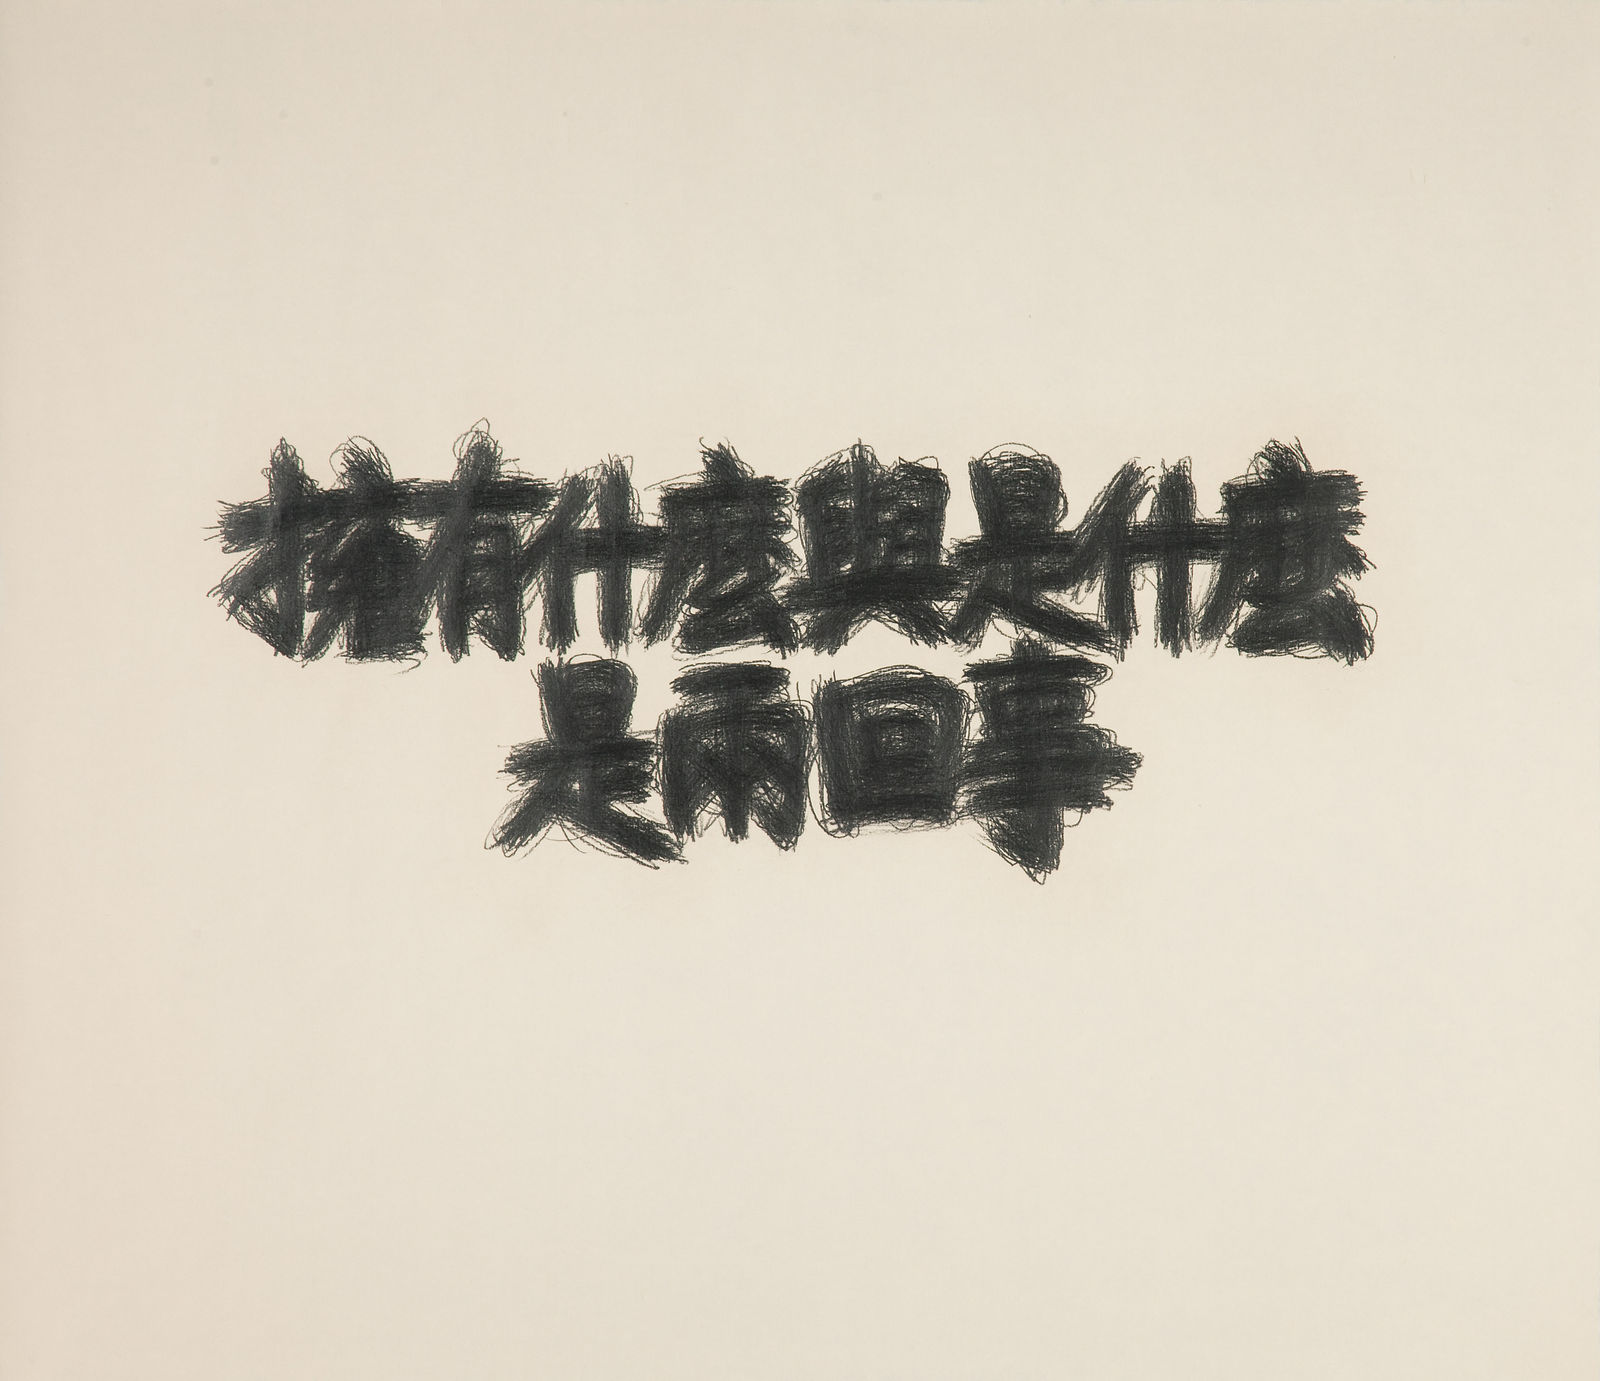 擁有什麼與是什麼
是兩回事